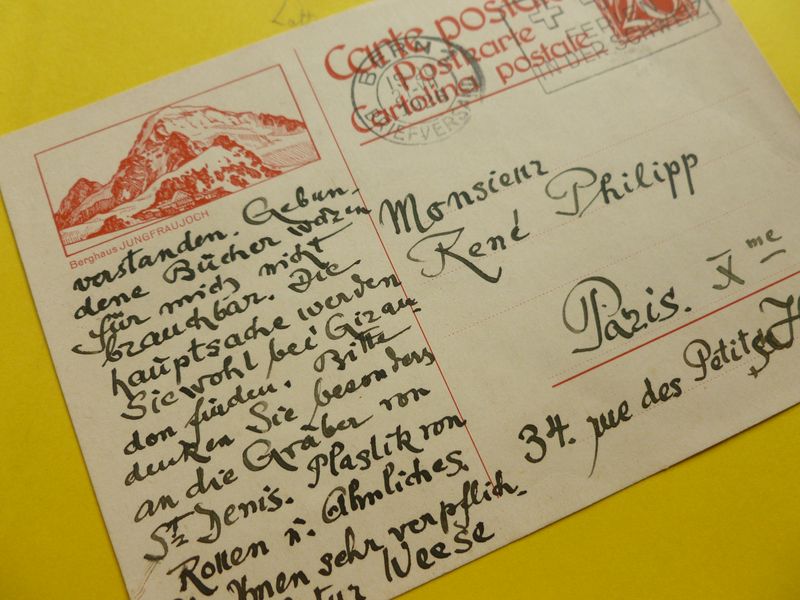 Carte postale
Postkarte
Cartolina postale
BERN
BRIEFVERSAND
IN DER SCHWEIZ
20
Berghaus JUNGFRAUJOCH
verstanden. Gebun-
dene Bücher wären
für mich nicht
brauchbar. Die
Hauptsache werden
Sie wohl bei Girau-
don finden. Bitte
denken Sie besonders
an die Gräber von
St Denis. Plastik von
Rouen u. Ähnliches.
Ihnen sehr verpflich-
Weese
Monsieur
René Philipp
Paris. X me
34. rue des Petites